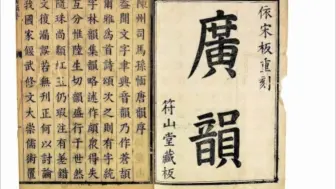 依宋板重刻
廣韻
符山堂藏板
陳州司馬孫愐唐韻序
盖聞文字聿興音韻乃作蒼頡
爾雅爲首詩頌次之則有字統
字林韻集韻略述作頗衆得失
互分惟陸生切韻盛行於世然
隨珠尚纇虹玉仍瑕注有差錯
文復漏誤若無刊正何以討論
我國家偃武修文大崇儒術置